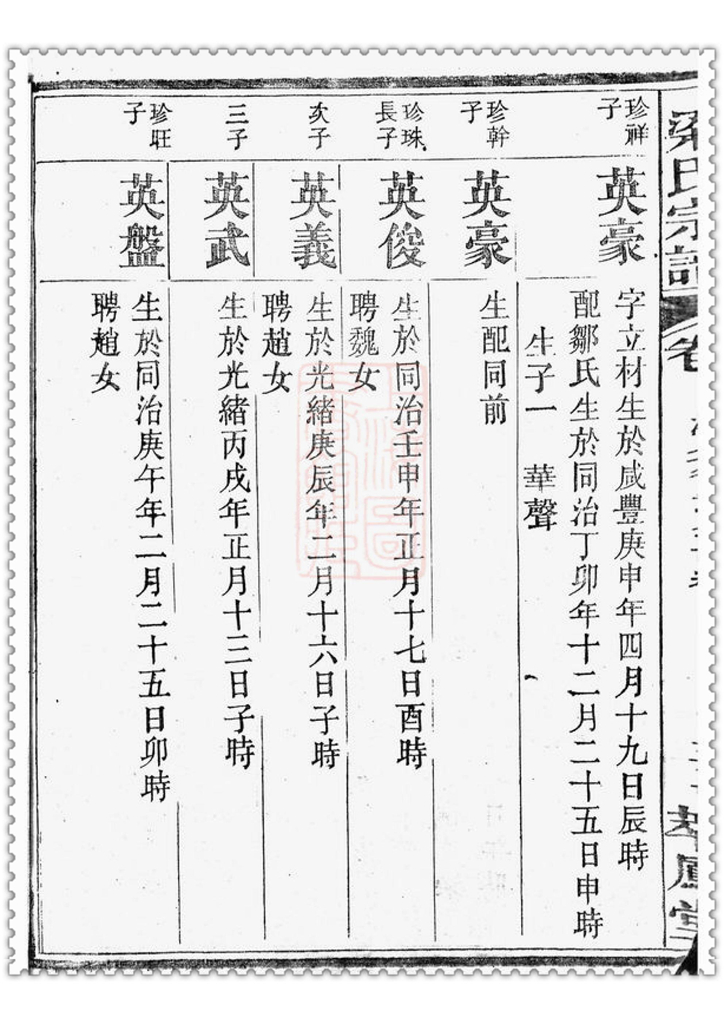 梁氏宗譜
卷
鳳堂
珍祥
子
英豪
字立材生於咸豐庚申年四月十九日辰時
配鄒氏生於同治丁卯年十二月二十五日申時
生子一 華聲
珍幹
子
英豪
生配同前
珍珠
長子
英俊
生於同治壬申年正月十七日酉時
聘魏女
次子
英義
生於光緒庚辰年二月十六日子時
聘趙女
三子
英武
生於光緒丙戌年正月十三日子時
珍旺
子
英盤
生於同治庚午年二月二十五日卯時
聘趙女